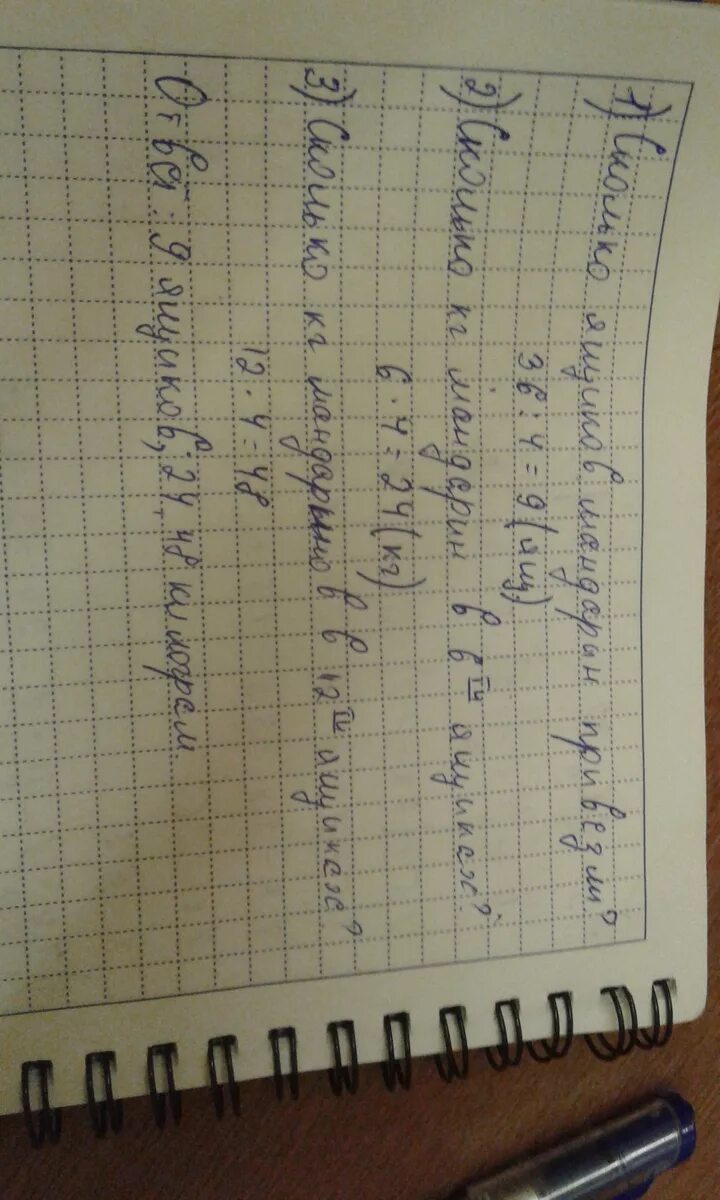 1) Сколько ящиков мандарын привезли?
36 : 4 = 9 (ящ)
2) Сколько кг мандарин в 6ти ящиках?
6 · 4 = 24 (кг)
3) Сколько кг мандарынов в 12ти ящиках?
12 · 4 = 48
Ответ: 9 ящиков, 24, 48 килограм.